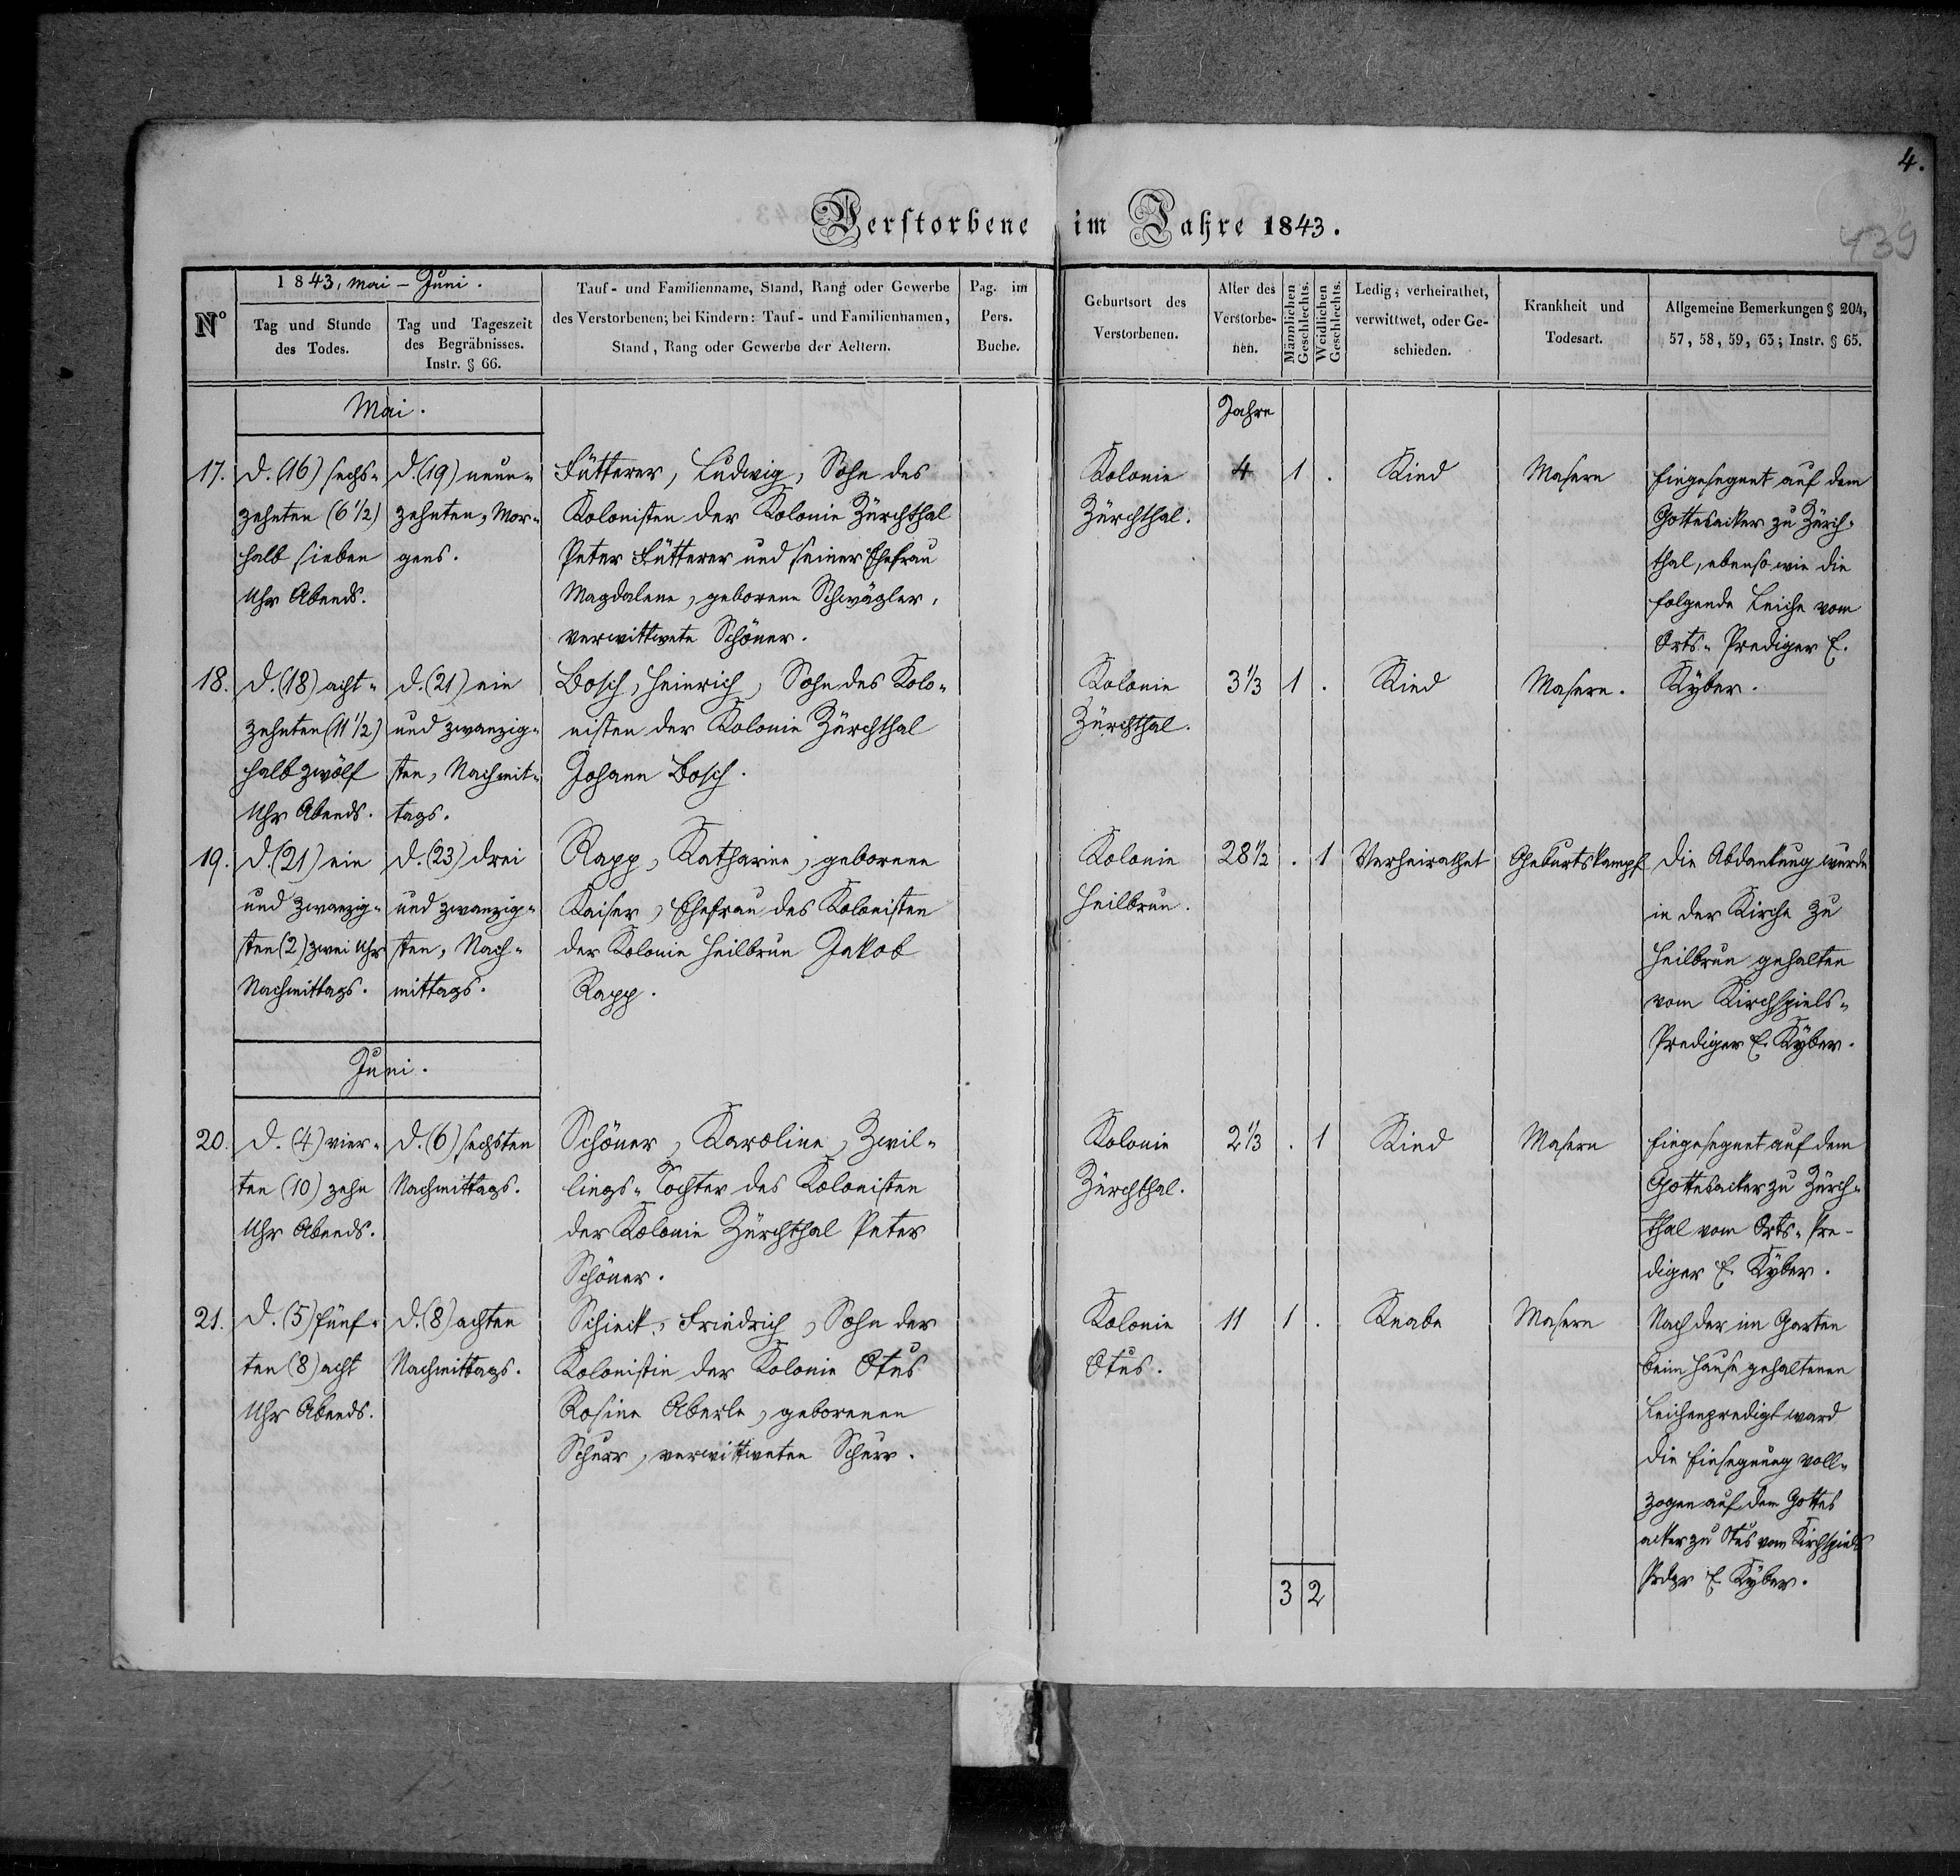 4.
439
Verstorbene im Jahre 1843.
N°
1843, Mai - Juni.
Tag und Stunde
des Todes.
Tag und Tageszeit
des Begräbnisses.
Instr. § 66.
Tauf- und Familienname, Stand, Rang oder Gewerbe
des Verstorbenen; bei Kindern: Tauf- und Familiennamen,
Stand, Rang oder Gewerbe der Aeltern.
Pag. im
Pers.
Buche.
Geburtsort des
Verstorbenen.
Alter des
Verstorbe-
nen.
Männlichen
Geschlechts.
Weiblichen
Geschlechts.
Ledig, verheirathet,
verwittwet, oder Ge-
schieden.
Krankheit und
Todesart.
Allgemeine Bemerkungen § 204,
57, 58, 59, 63; Instr. § 65.
Mai.
Jahre
17.
d. (16) sechs-
zehnten (6 1/2)
halb sieben
Uhr Abends.
d. (19) neun-
zehnten, Mor-
gens.
Fütterer, Ludwig, Sohn des
Kolonisten der Kolonie Zürchthal
Peter Fütterer und seiner Ehefrau
Magdalene, geborene Schwägler,
verwittwete Schöner.
Kolonie
Zürchthal.
4
1
.
Kind
Masern
Eingesegnet auf dem
Gottesacker zu Zürch-
thal, ebenso wie die
folgende Leiche vom
Orts-Prediger E.
Kyber.
18.
d. (18) acht-
zehnten (11 1/2)
halb zwölf
Uhr Abends.
d. (21) ein
und zwanzig-
sten, Nachmit-
tags.
Bosch, Heinrich, Sohn des Kolo-
nisten der Kolonie Zürchthal
Johann Bosch.
Kolonie
Zürchthal.
3 1/3
1
.
Kind
Masern.
19.
d. (21) ein
und zwanzig-
sten (2) zwei Uhr
Nachmittags.
d. (23) drei
und zwanzig-
sten, Nach-
mittags.
Rapp, Katharine, geborene
Kaiser, Ehefrau des Kolonisten
der Kolonie Heilbrun Jakob
Rapp.
Kolonie
Heilbrun.
28 1/2
.
1
Verheirathet
Geburtskampf
Die Abdankung wurde
in der Kirche zu
Heilbrun gehalten
vom Kirchspiels-
Prediger E. Kyber.
Juni.
20.
d. (4) vier-
ten (10) zehn
Uhr Abends.
d. (6) sechsten
Nachmittags.
Schöner, Karoline, Zwil-
lings-Tochter des Kolonisten
der Kolonie Zürchthal Peter
Schöner.
Kolonie
Zürchthal.
2 1/3
.
1
Kind
Masern
Eingesegnet auf dem
Gottesacker zu Zürch-
thal vom Orts-Pre-
diger E. Kyber.
21.
d. (5) fünf-
ten (8) acht
Uhr Abends.
d. (8) achten
Nachmittags.
Schieck, Friedrich, Sohn der
Kolonistin der Kolonie Otus
Rosine Aberle, geborenen
Schurr, verwittweten Schurr.
Kolonie
Otus.
11
1
.
Knabe
Masern
Nach der im Garten
beim Hause gehaltenen
Leichenpredigt ward
die Einsegnung voll-
zogen auf dem Gottes
acker zu Otus vom Kirchspiels
Prdgr E. Kyber.
3
2